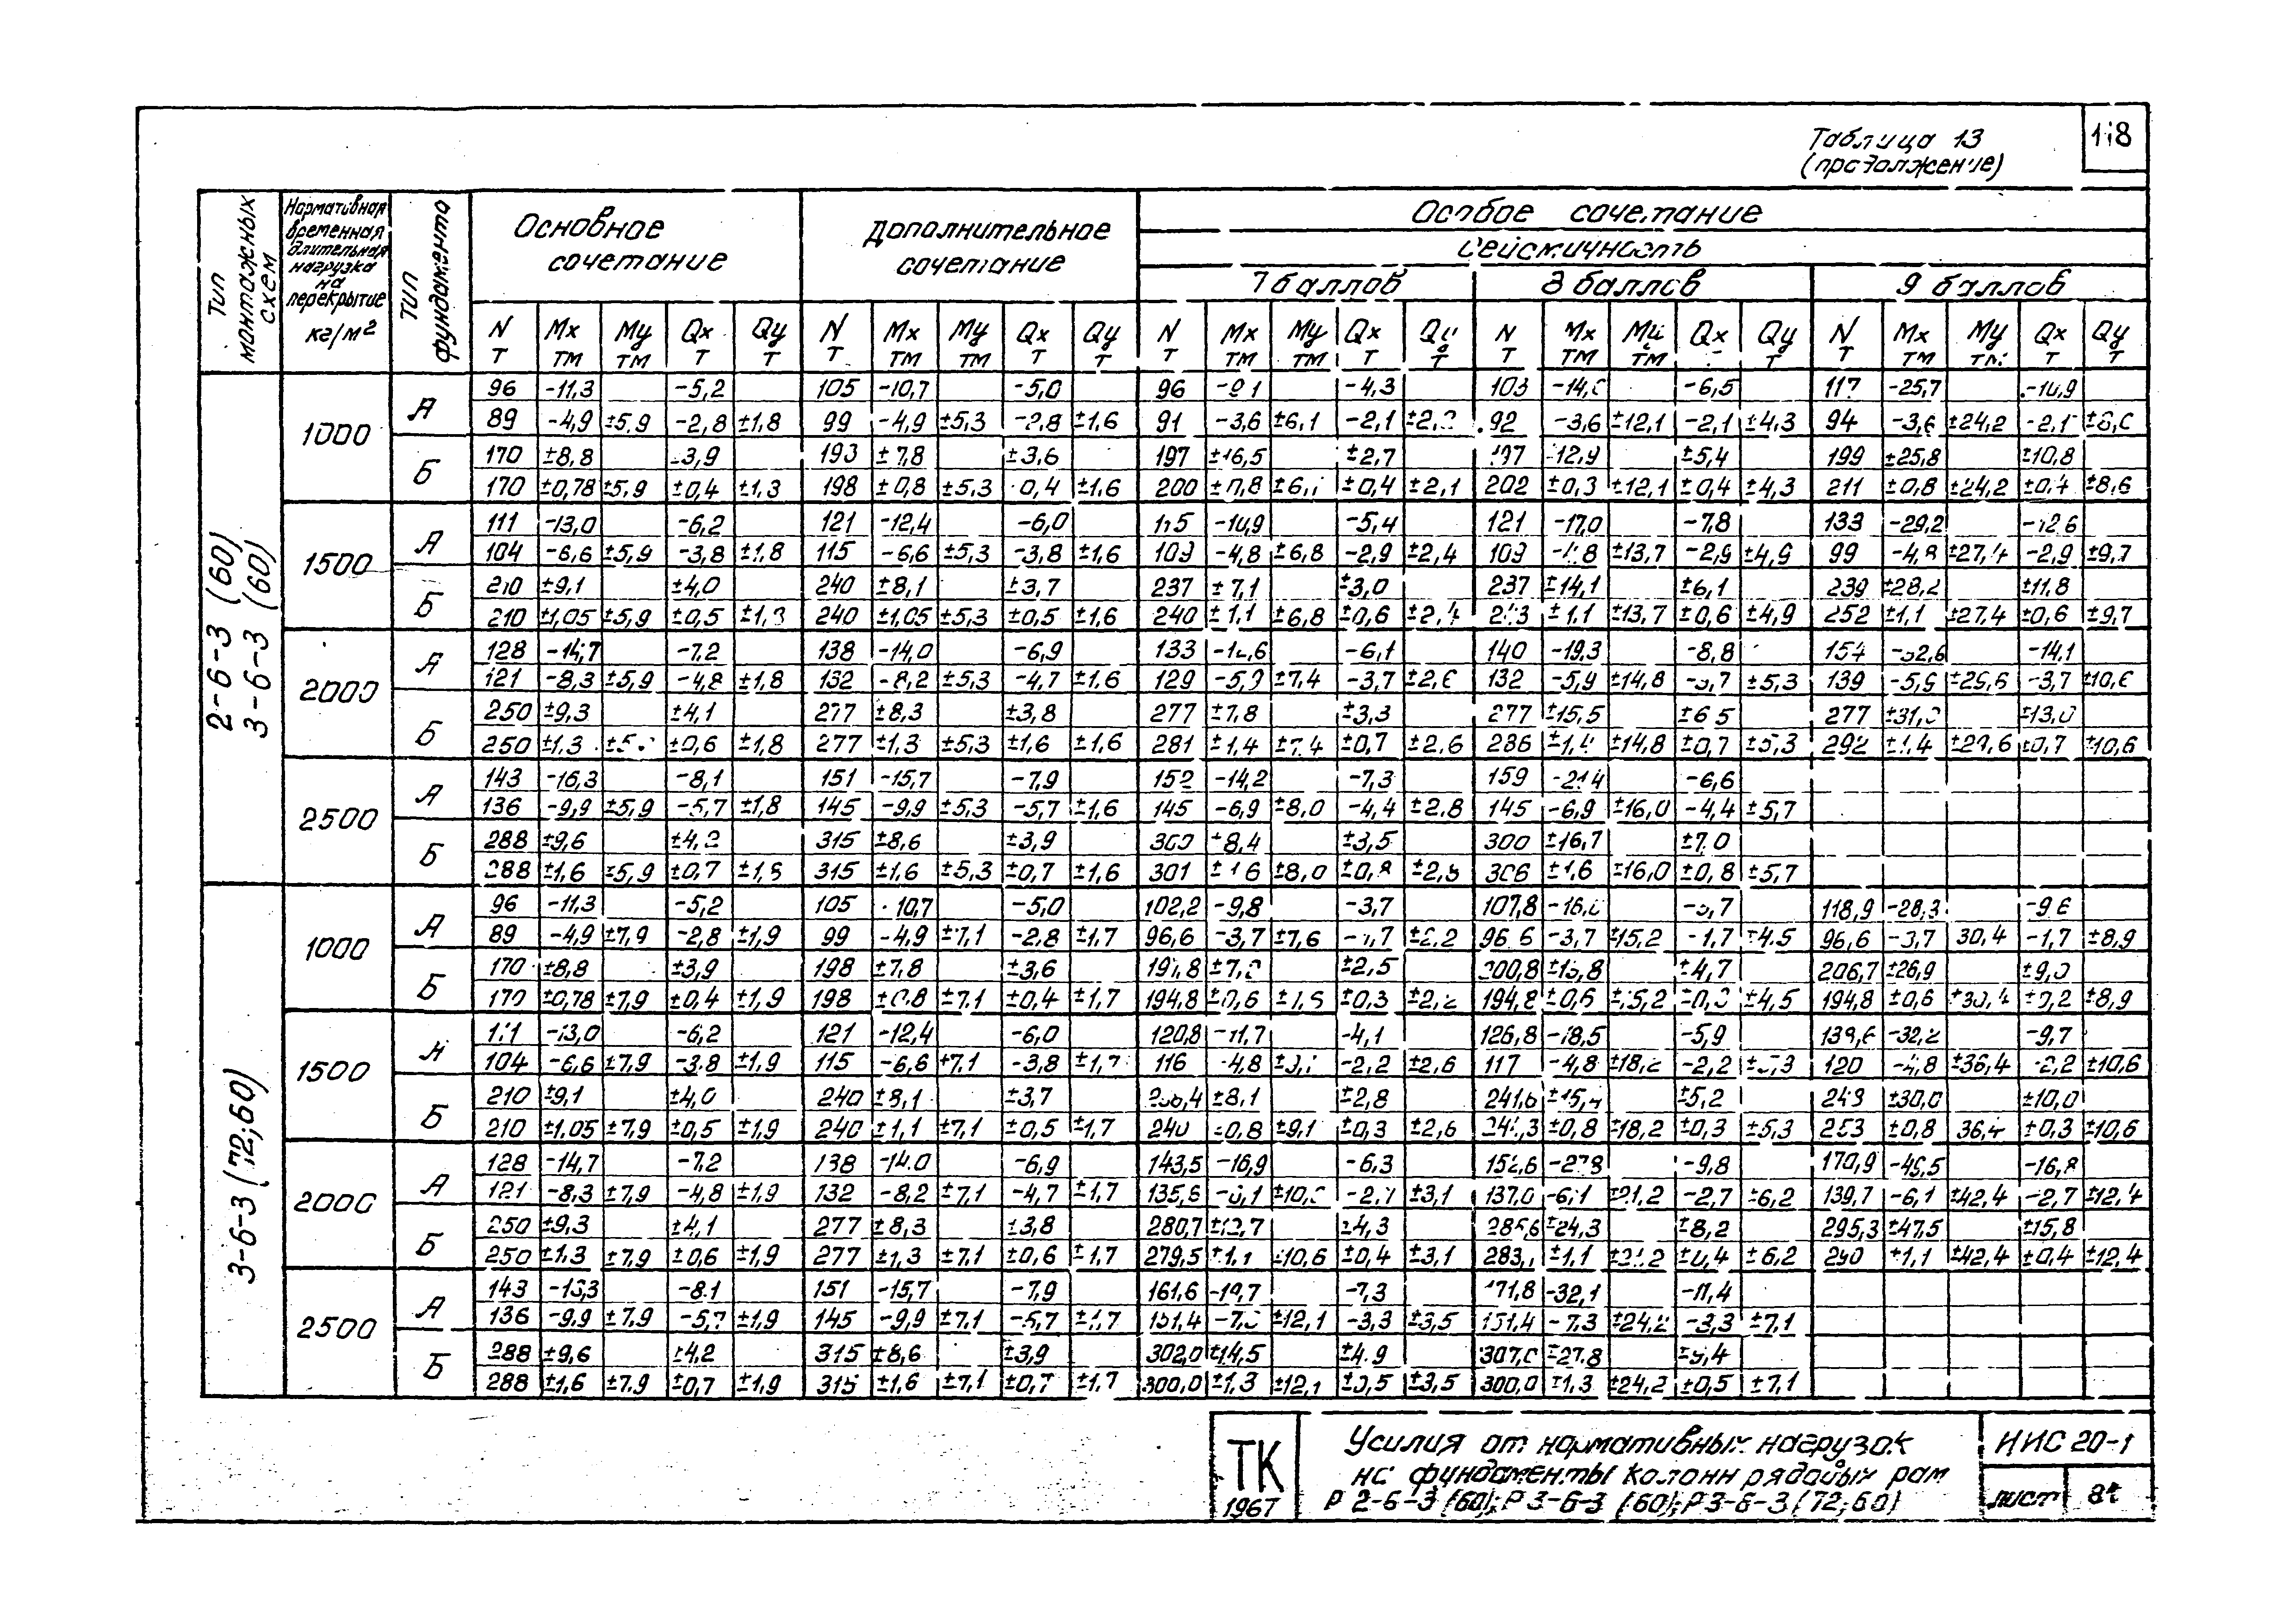 Таблица 13
(продолжение)
Тип монтажных схем
Нормативная временная длительная нагрузка на перекрытие кг/м²
Тип фундамента
Основное сочетание
Дополнительное сочетание
Особое сочетание
Сейсмичность
7 баллов 8 баллов 9 баллов
N Mx My Qx Qy N Mx My Qx Qy N Mx My Qx N Mx Qx Qy N Mx My Qx Qy
т тм тм т т т тм тм т т т тм тм т т т тм тм т т тм т т
2-6-3 (60)
3-6-3 (60)
1000
А
96 -11,3 -5,2 105 -10,7 -5,0 96 -4,3 103 -6,5 117 -25,7
89 -4,9 ±5,9 -2,8 ±1,8 99 -4,9 ±5,3 -2,8 ±1,6 91 -3,6 ±6,1 -2,1 92 -3,6 ±12,1 -2,1 ±4,3 94 -3,6 ±24,2 -2,1
Б
170 ±8,8 193 ±7,8 ±3,6 197 ±16,5 ±2,7 ±5,4 199 ±25,8 ±10,8
170 ±0,78 ±5,9 ±0,4 ±1,3 198 ±0,8 ±5,3 ±1,6 200 ±0,4 ±2,1 202 ±0,3 ±12,1 ±0,4 ±4,3 211 ±0,8 ±24,2 ±0,4 ±8,6
1500
А
111 -13,0 -6,2 121 -12,4 -6,0 -10,9 -5,4 121 -17,0 -7,8 133 -29,2 -12,6
104 -6,6 ±5,9 -3,8 ±1,8 115 -6,6 ±5,3 -3,8 ±1,6 109 -4,8 ±6,8 -2,9 ±2,4 109 ±13,7 -2,9 ±4,9 99 -4,8 ±27,4 -2,9 ±9,7
Б
210 ±9,1 ±4,0 240 ±8,1 ±3,7 237 ±7,1 ±3,0 237 ±14,1 ±6,1 239 ±28,2 ±11,8
210 ±1,05 ±5,9 ±0,5 240 ±1,05 ±5,3 ±0,5 ±1,6 240 ±1,1 ±6,8 ±0,6 ±2,4 ±1,1 ±13,7 ±0,6 ±4,9 252 ±1,1 ±27,4 ±0,6 ±9,7
2000
А
128 -14,7 -7,2 138 -14,0 -6,9 133 -6,1 140 -19,3 -8,8 154 -32,6 -14,1
121 -8,3 ±5,9 -4,8 ±1,8 132 -8,2 ±5,3 -4,7 ±1,6 129 -5,9 ±7,4 -3,7 ±2,6 132 -5,9 ±14,8 ±5,3 139 -5,9 -3,7 ±10,6
Б
250 ±9,3 ±4,1 277 ±8,3 ±3,8 277 ±7,8 ±3,3 277 ±15,5 ±6,5 277 ±13,0
250 ±1,3 ±0,6 ±1,8 277 ±1,3 ±5,3 ±1,6 ±1,6 281 ±1,4 ±7,4 ±0,7 ±2,6 286 ±1,4 ±14,8 ±0,7 ±5,3 292 ±29,6 ±0,7 ±10,6
2500
А
143 -16,3 -8,1 151 -15,7 -7,9 152 -14,2 -7,3 159 -21,4 -6,6
136 -9,9 ±5,9 -5,7 ±1,8 145 -9,9 ±5,3 -5,7 ±1,6 145 -6,9 ±8,0 -4,4 ±2,8 145 -6,9 ±16,0 -4,4 ±5,7
Б
288 ±9,6 315 ±8,6 ±3,9 300 ±8,4 ±3,5 300 ±16,7 ±7,0
288 ±1,6 ±5,9 ±0,7 315 ±1,6 ±5,3 ±0,7 ±1,6 301 ±1,6 ±8,0 ±0,8 306 ±1,6 ±16,0 ±0,8 ±5,7
3-6-3 (72,60)
1000
А
96 -11,3 -5,2 105 -5,0 102,2 -9,8 -3,7 107,8 118,9 -28,3 -9,6
89 -4,9 ±7,9 -2,8 ±1,9 99 -4,9 ±7,1 -2,8 ±1,7 96,6 -3,7 ±7,6 ±2,2 96,6 -3,7 ±15,2 -1,7 ±4,5 96,6 -3,7 30,4 -1,7 ±8,9
Б
170 ±8,8 ±3,9 198 ±7,8 ±3,6 ±2,5 ±4,7 206,7 ±26,9
170 ±0,78 ±7,9 ±0,4 ±1,9 198 ±0,8 ±7,1 ±0,4 ±1,7 194,8 ±0,6 ±0,3 ±2,2 194,8 ±0,6 ±15,2 ±4,5 194,8 ±0,6 ±30,4 ±0,2 ±8,9
1500
-13,0 -6,2 121 -12,4 -6,0 120,8 -11,7 -4,1 126,8 -18,5 -5,9 138,6 -32,2 -9,7
104 -6,6 ±7,9 -3,8 ±1,9 115 -6,6 ±7,1 -3,8 ±1,7 116 -4,8 -2,2 ±2,6 117 -4,8 ±18,2 -2,2 120 -4,8 ±36,4 -2,2 ±10,6
Б
210 ±9,1 ±4,0 240 ±8,1 ±3,7 ±8,1 ±2,8 241,6 ±15,4 ±5,2 ±30,0 ±10,0
210 ±1,05 ±7,9 ±0,5 ±1,9 240 ±1,1 ±7,1 ±0,5 ±1,7 240 ±0,8 ±9,1 ±0,3 ±2,6 ±0,8 ±18,2 ±0,3 ±5,3 253 ±0,8 36,4 ±0,3 ±10,6
2000
А
128 -14,7 -7,2 138 -14,0 -6,9 143,5 -16,9 -6,3 152,6 -27,8 -9,8 170,9 -16,8
121 -8,3 ±7,9 -4,8 ±1,9 132 -8,2 ±7,1 -4,7 ±1,7 135,6 -6,1 ±3,1 137,0 -6,1 ±21,2 -2,7 ±6,2 139,7 -6,1 ±42,4 -2,7 ±12,4
Б
250 ±9,3 ±4,1 277 ±8,3 ±3,8 280,7 ±12,7 ±4,3 ±24,3 ±8,2 295,3 ±47,5 ±15,8
250 ±1,3 ±7,9 ±0,6 ±1,9 277 ±1,3 ±7,1 ±0,6 ±1,7 279,5 ±1,1 ±10,6 ±0,4 ±3,1 ±1,1 ±0,4 ±6,2 290 ±1,1 ±42,4 ±0,4 ±12,4
2500
А
143 -16,3 -8,1 151 -15,7 -7,9 161,6 -19,7 -7,3 171,8 -32,1 -11,4
136 -9,9 ±7,9 -5,7 ±1,9 145 -9,9 ±7,1 -5,7 ±1,7 151,4 ±12,1 -3,3 ±3,5 151,4 -7,3 ±24,2 -3,3 ±7,1
Б
288 ±9,6 ±4,2 315 ±8,6 ±3,9 302,0 ±14,5 ±4,9 307,0 ±27,8 ±9,4
288 ±1,6 ±7,9 ±0,7 ±1,9 315 ±1,6 ±7,1 ±0,7 ±1,7 300,0 ±1,3 ±12,1 ±0,5 ±3,5 300,0 ±1,3 ±24,2 ±0,5 ±7,1
ТК
1967
Усилия от нормативных нагрузок
на фундаменты колонн рядовых рам
Р 2-6-3 (60); Р 3-6-3 (60); Р 3-6-3 (72,60)
ИИС 20-1
лист